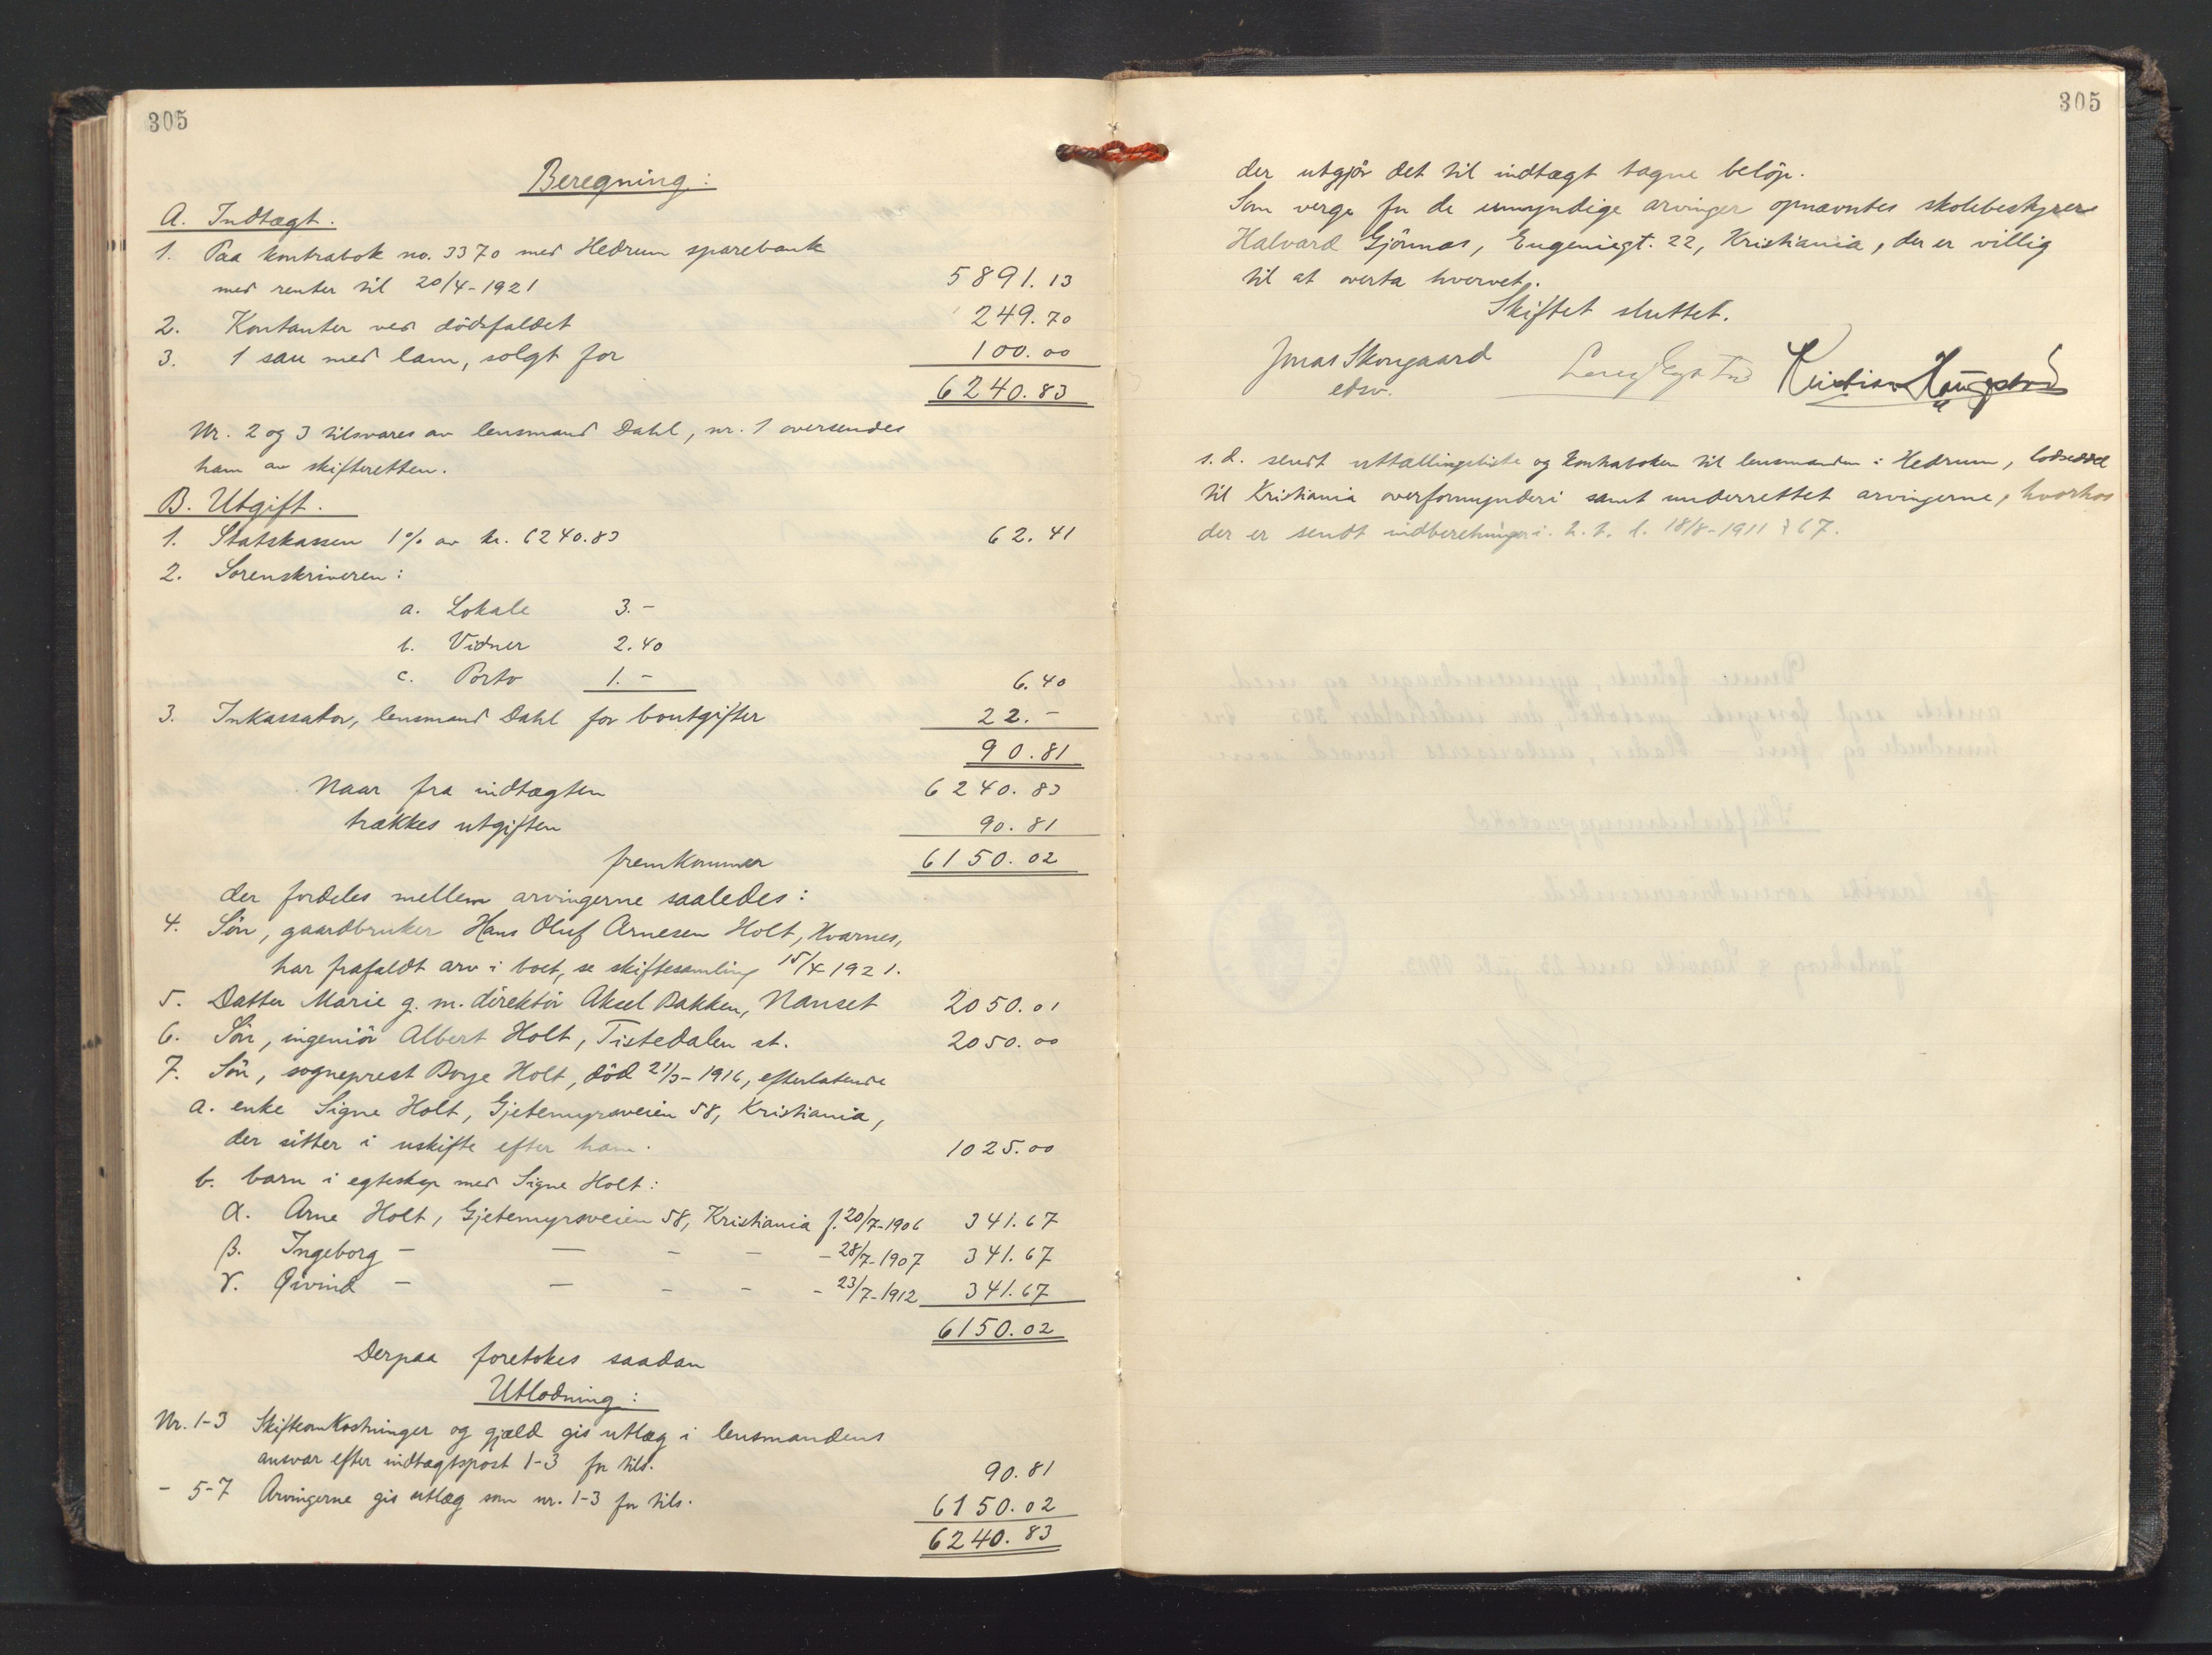 305
Beregning:
A. Indtægt.
1. Paa kontrabok no. 3370 med Hedrum sparebank
med renter til 20/4-1921 5891.13
2. Kontanter ved dödsfaldet 249.70
3. 1 sau med lam, solgt for 100.00
6240.83
Nr. 2 og 3 tilsvares av lensmand Dahl, nr. 1 oversendes
ham av skifteretten.
B. Utgift.
1. Statskassen 1% av kr. 6240.83 62.41
2. Sorenskriveren:
a. Lokale 3.-
b. Vidner 2.40
c. Porto 1.- 6.40
3. Inkassator, lensmand Dahl for boutgifter 22.-
90.81
Naar fra indtægten 6240.83
trækkes utgiften 90.81
fremkommer 6150.02
der fordeles mellem arvingerne saaledes:
4. Sön, gaardbruker Hans Oluf Arnesen Holt, Kvarnes,
har frafaldt arv i boet, se skiftesamling 15/4 1921.
5. Datter Marie g. m. direktör Aksel Bakken, Nanset 2050.01
6. Sön, ingeniör Albert Holt, Tistedalen st. 2050.00
7. Sön, sogneprest Borge Holt, död 21/3-1916, efterlatende
a. enke Signe Holt, Gjetemyrsveien 58, Kristiania,
der sitter i uskifte efter ham. 1025.00
b. barn i egteskap med Signe Holt:
α. Arne Holt, Gjetemyrsveien 58, Kristiania f. 20/7-1906 341.67
β. Ingeborg - - - - - 28/7-1907 341.67
γ. Øivind - - - - - 23/7-1912 341.67
6150.02
Derpaa foretokes saadan
Utlodning:
Nr. 1-3 Skifteomkostninger og gjæld gis utlæg i lensmandens
ansvar efter indtægtspost 1-3 for tils. 90.81
- 5-7 Arvingerne gis utlæg som nr. 1-3 for tils. 6150.02
6240.83
305
der utgjör det til indtægt tagne belöp.
Som verge for de umyndige arvinger opnævntes skolebestyrer
Halvard Gjönnæs, Eugeniegt. 22, Kristiania, der er villig
til at overta hvervet.
Skiftet sluttet.
Jonas Skougaard Kristian Haugstad
edsv.
s.d. sendt uttællingsliste og kontraboken til lensmanden i Hedrum, lodseddel
til Kristiania overformynderi samt underrettet arvingerne, hvorhos
der er sendt indberetning i. h. t. l. 18/8-1911 § 67.